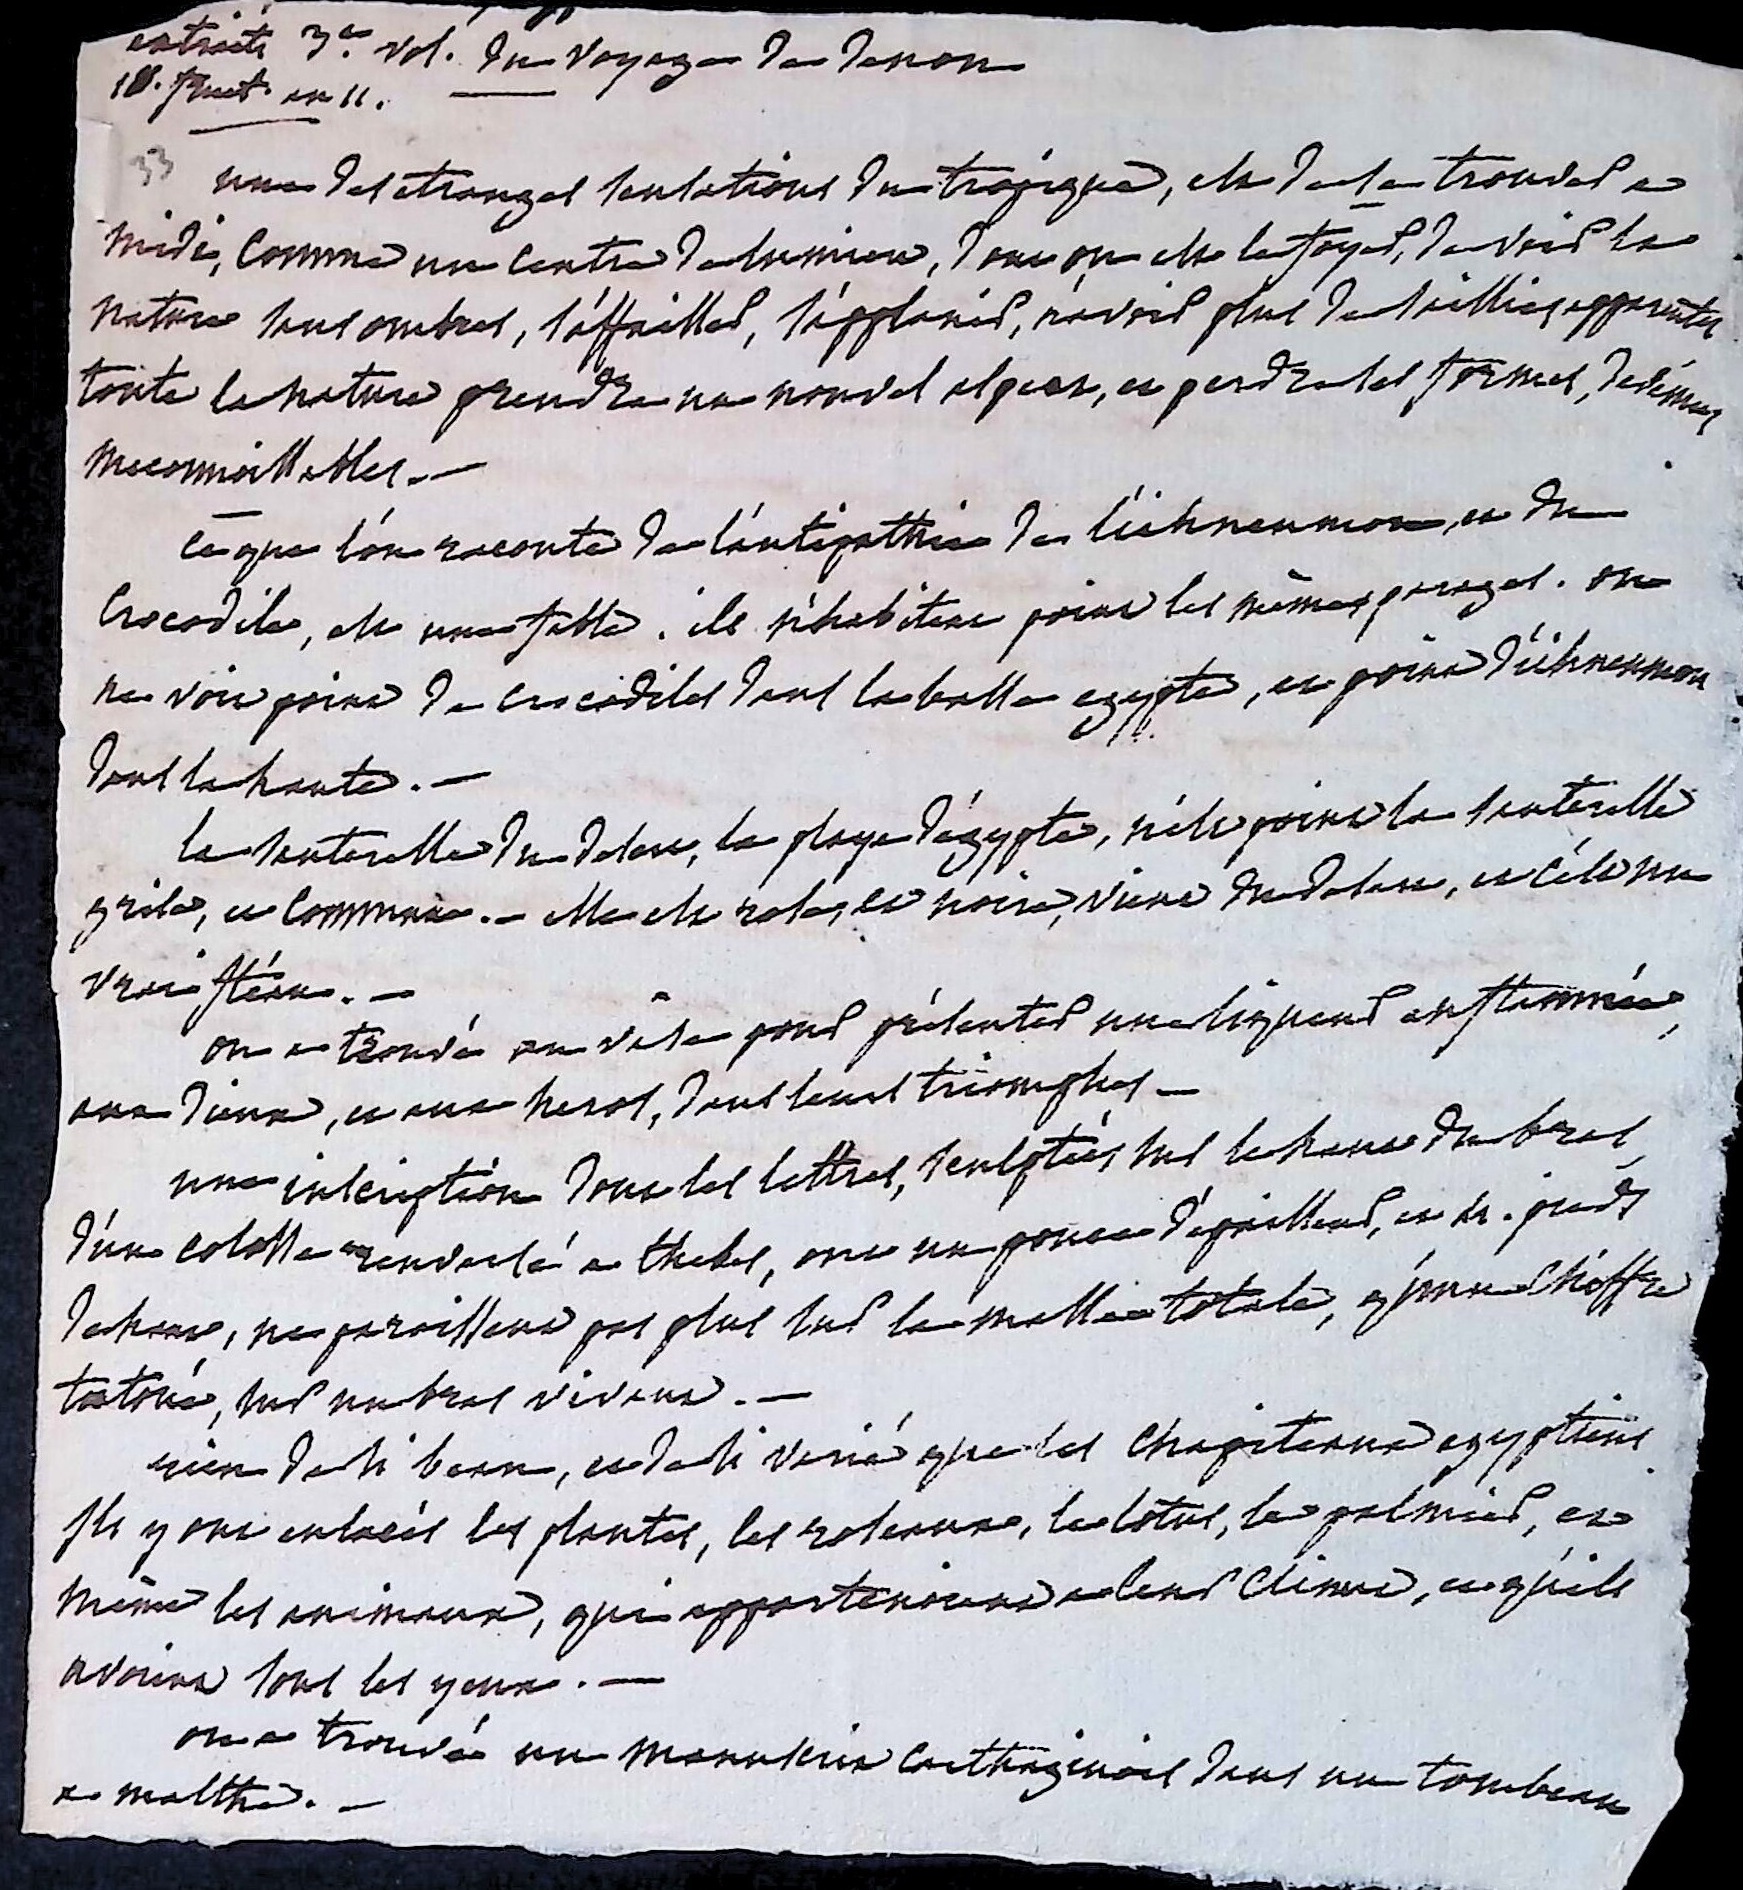 extraits 3e. vol. du voyage de denon
18. fruct. an 11.
33
une des etranges sensations du tropique, est de se trouver a
midi, comme un centre de lumiere, dont on est le foyer, de voir la
nature sans ombres, s'affaisser, s'applanir, n'avoir plus de saillies apparentes
toute la nature prendre un nouvel aspect, et perdre les formes, devenues
meconnoissables. —
ce que l'on raconte de l'antipathie de l'ichneumon, et du
crocodile, est une fable. ils n'habitent point les mêmes parages. on
ne voit point de crocodiles dans la basse egypte, et point d'ichneumon
dans la haute. —
la sauterelle du desert, la playe d'égypte, n'est point la sauterelle
grise, et commune. — elle est rose, et noire, vient du desert, et c'est un
vrai fléau. —
on a trouvé un vase pour présenter une liqueur enflammée,
aux dieux, et aux heros, dans leurs triomphes —
une inscription dont les lettres, sculptées sur le haut du bras
d'un colosse renversé a thebes, ont un pouce d'epaisseur, et . pieds
de haut, ne paroissent pas plus sur la masse totale, qu'un chiffre
tatoué, sur un bras vivant. —
rien de si beau, et de si varié que les chapiteaux egyptiens
ils y ont enlacés les plantes, les roseaux, le lotus, le palmier, et
même les animaux, qui appartenoient a leur climat, et qu'ils
avoient sous les yeux. —
on a trouvé un manuscrit carthaginois dans un tombeau
a malthe. —